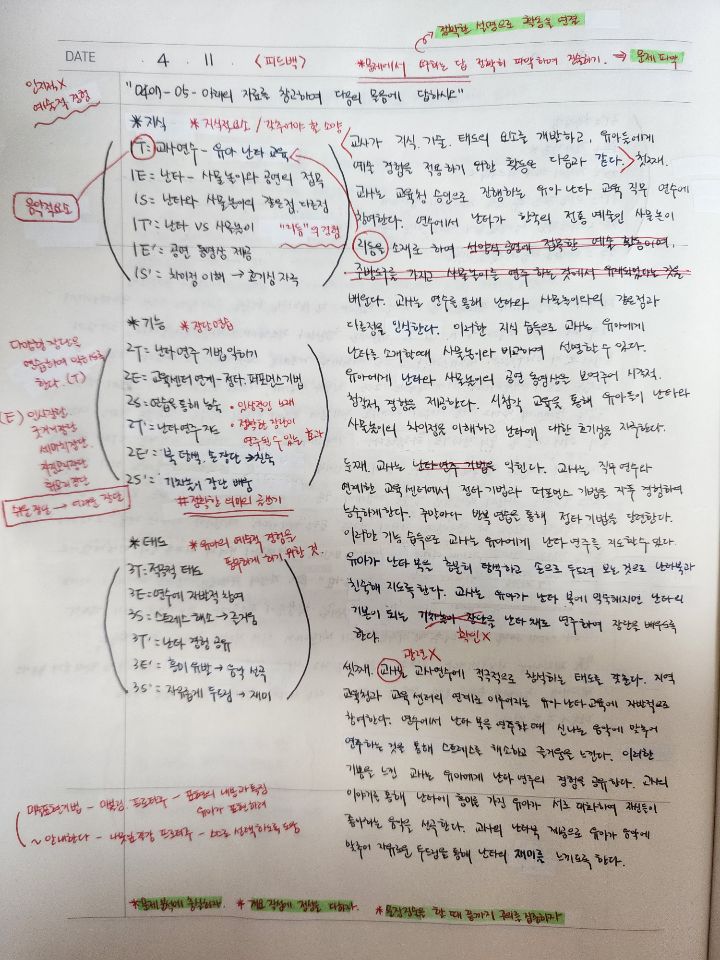 정확한 설명으로 활동을 연결
DATE 4. 11. <피드백>
*문제에서 원하는 답 정확히 파악하여 작성하기. → 문제 파악
"0407-05- 아래의 자료를 참고하여 다음의 물음에 답하시오"
인지적X
예술적 경험
*지식 *지식적요소 / 갖추어야 할 소양
1T = 교사연수 - 유아 난타 교육
1E = 난타 - 사물놀이와 공연의 접목
1S = 난타와 사물놀이의 같은점 다른점
1T' = 난타 VS 사물놀이
"리듬"의 경험
1E' = 공연 동영상 제공
1S' = 차이점 이해 → 호기심 자극
음악적요소
*기능 *장단연습
2T = 난타연주 기법 익히기
2E = 교육센터 연계 - 점타. 퍼포먼스기법
2S = 연습을 통해 능숙
• 인상적인 노래
2T' = 난타연주 지도
• 정확한 장단이 연주될 수 있는 효과
2E' = 북 탐색. 손 장단 → 친숙
2S' = 기차놀이 장단 배움
#정확한 의미의 글쓰기
다양한 장단을
연습하여 익히도록
한다. (T)
(E) 인사장단
굿거리장단
세마치장단
자진모리장단
휘모리장단
쉬운 장단 → 어려운 장단
*태도 *유아의 예술적 경험을
풍부하게 하기 위한 것
3T = 적극적 태도
3E = 연수에 자발적 참여
3S = 스트레스 해소 → 즐거움
3T' = 난타 경험 공유
3E' = 흥미 유발 → 음악 선곡
3S' = 자유롭게 두드림 → 재미
교사가 지식. 기술. 태도의 요소를 개발하고, 유아들에게
예술 경험을 적용하기 위한 활동은 다음과 같다. 첫째.
교사는 교육청 승인으로 진행하는 유아 난타 교육 직무 연수에
참여한다. 연수에서 난타가 한국의 전통 예술인 사물놀이
리듬을 소재로 하여 서양식 공연에 접목한 예술 활동이며,
주방도구를 가지고 사물놀이를 연주 하는 것에서 유래되었다는 것을
배운다. 교사는 연수를 통해 난타와 사물놀이와의 같은점과
다른점을 인식한다. 이러한 지식 습득으로 교사는 유아에게
난타를 소개할때 사물놀이와 비교하여 설명할 수 있다.
유아에게 난타와 사물놀이의 공연 동영상을 보여주어 시각적.
청각적 경험을 제공한다. 시청각 교육을 통해 유아들이 난타와
사물놀이의 차이점을 이해하고 난타에 대한 호기심을 자극한다.
둘째. 교사는 난타연주 기법을 익힌다. 교사는 직무 연수와
연계한 교육 센터에서 점타 기법과 퍼포먼스 기법을 자주 경험하여
능숙하게한다. 주말마다 반복 연습을 통해 점타 기법을 단련한다.
이러한 기능 습득으로 교사는 유아에게 난타 연주를 지도할 수 있다.
유아가 난타 북을 충분히 탐색하고 손으로 두드려 보는 것으로 난타북과
친숙해 지도록 한다. 교사는 유아가 난타 북에 익숙해지면 난타의
기본이 되는 기차놀이 장단을 난타 채로 연주하여 장단을 배우도록
한다. 확인X
관련X
셋째. 교사는 교사연수에 적극적으로 참석하는 태도를 갖춘다. 지역
교육청과 교육 센터의 연계로 이루어지는 유아 난타 교육에 자발적으로
참여한다. 연수에서 난타 북을 연주할 때 신나는 음악에 맞추어
연주하는 것을 통해 스트레스를 해소하고 즐거움을 느낀다. 이러한
기쁨을 느낀 교사는 유아에게 난타 연주의 경험을 공유한다. 교사의
이야기를 통해 난타에 흥미를 가진 유아가 서로 대화하여 자신들이
좋아하는 음악을 선곡한다. 교사의 난타북 제공으로 유아가 음악에
맞추어 자유로운 두드림을 통해 난타의 재미를 느끼도록 한다.
프로타주 - 표면의 내용과특징
유아가 표현하려
~ 안내한다 - 나뭇잎 프로타주 - 스스로 선택하도록
*문제 분석에 충실하자. *개요 작성에 정성을 다하자. *문장작성을 할 때 끝까지 검토하자